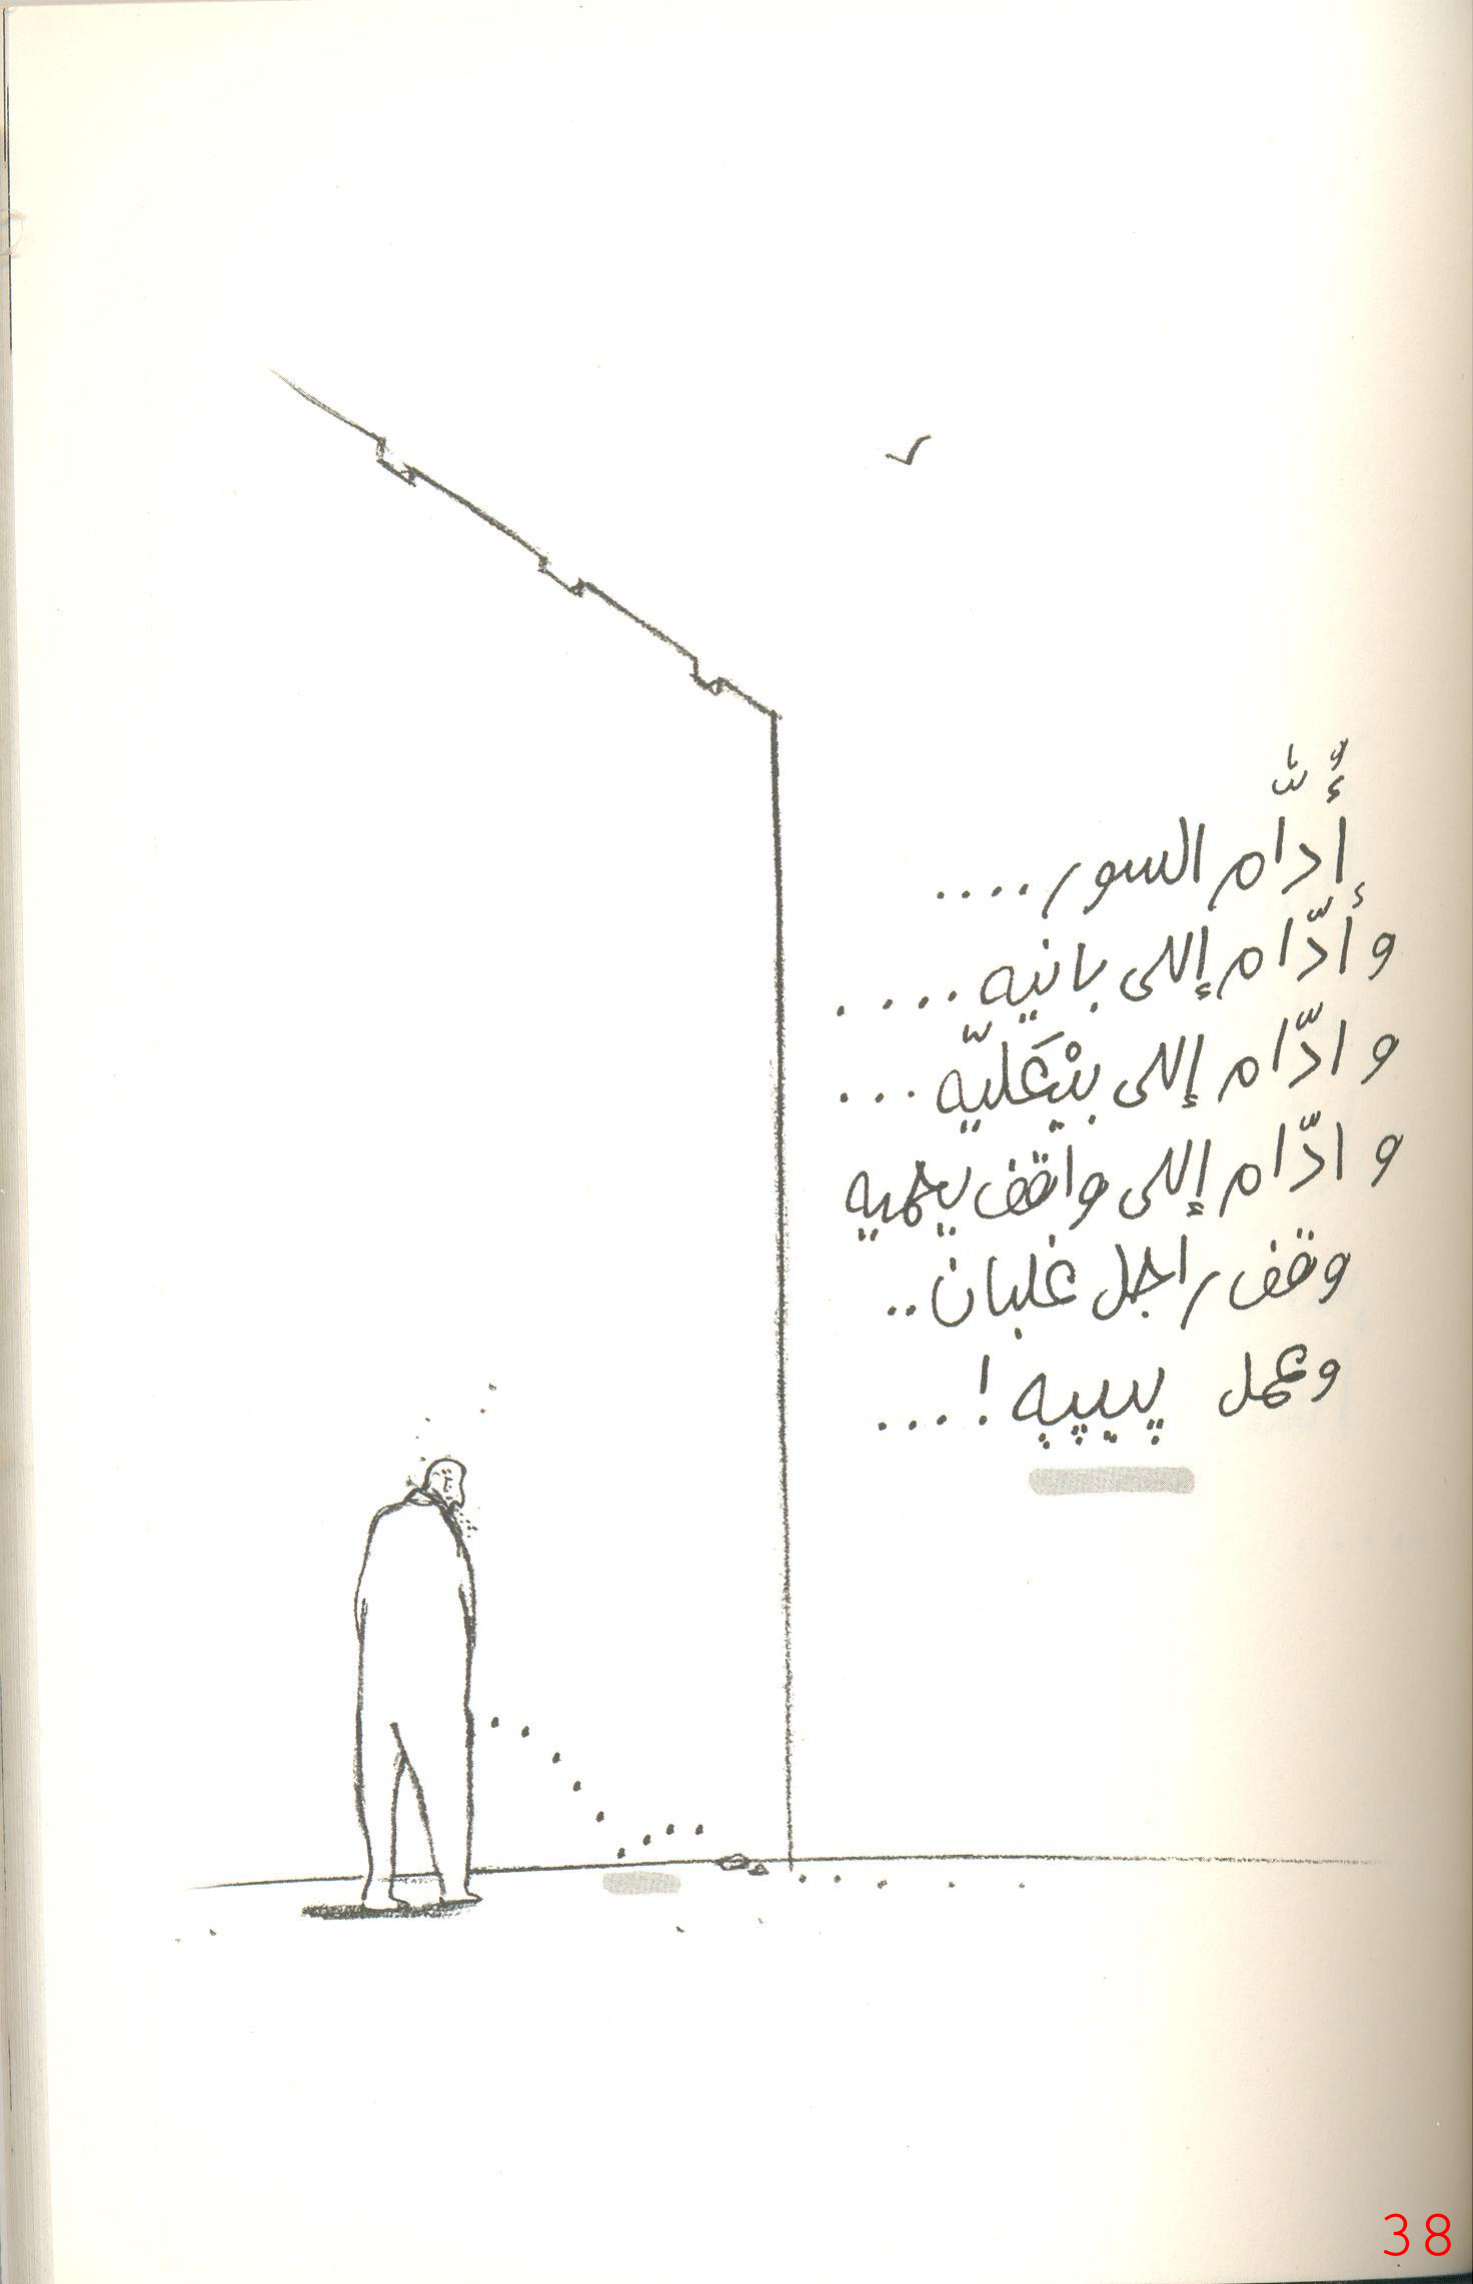 أُدّام السور....
وأُدّام إللى بانيه....
و ادّام إللى بيْعَليّه...
و ادّام إللى واقف يحميه
وقف راجل غلبان..
وعمل پيپيه!...
38